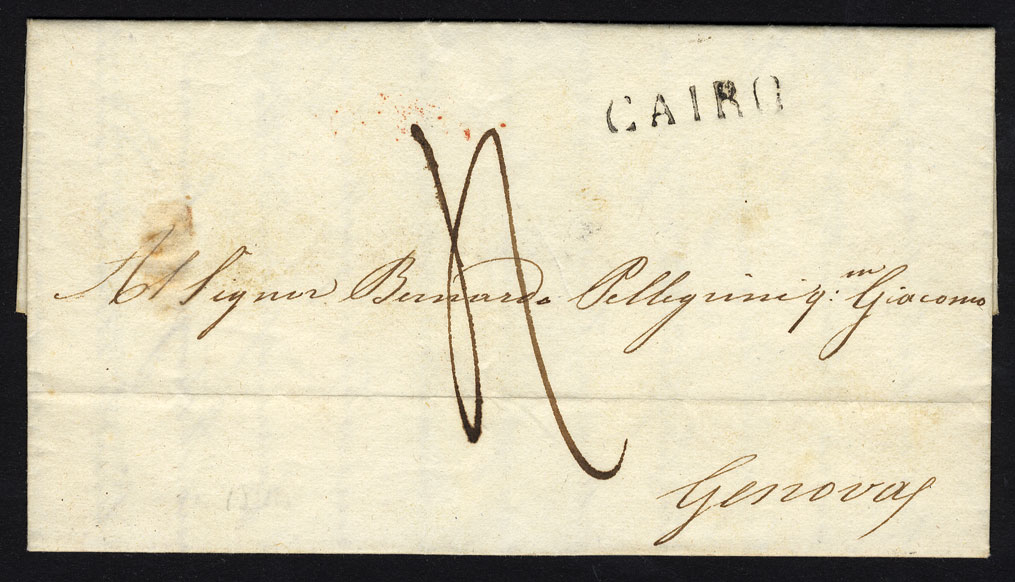 CAIRO
Al Signor Bernardo Pellegrini q:m Giacomo
Genova